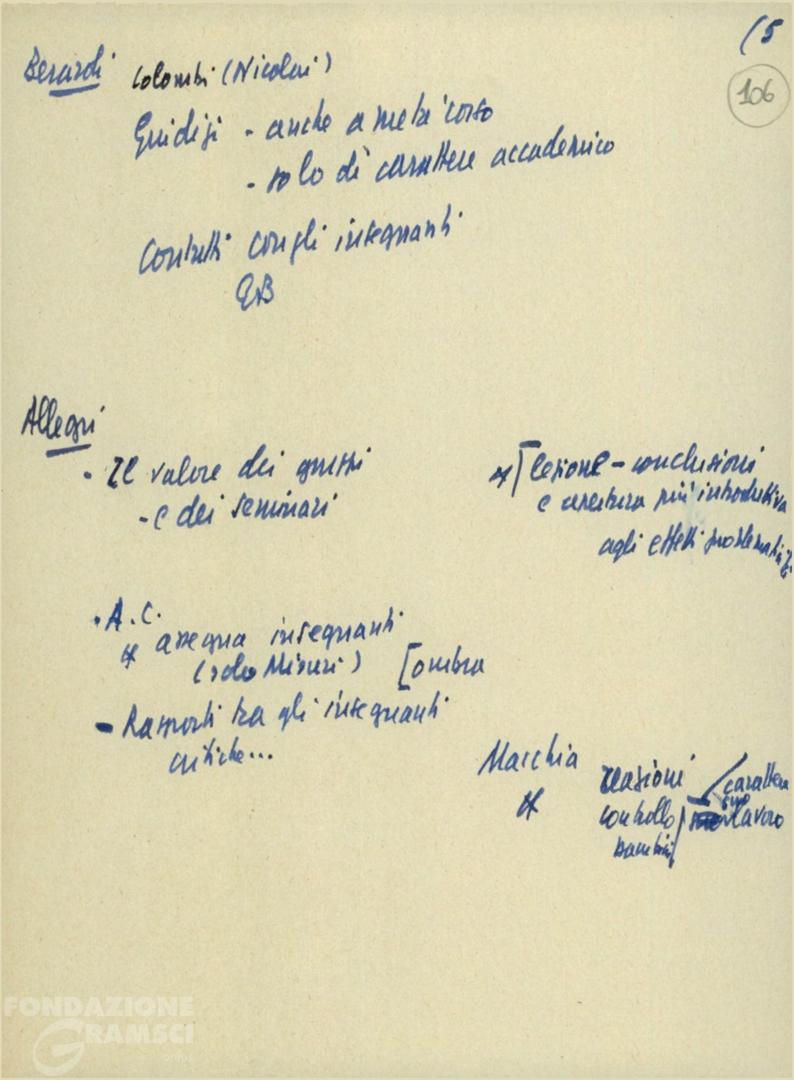 (5
106
Berardi Colombi (Nicolai)
Giudizi - anche a metà corso
- solo di carattere accademico
Contatti con gli insegnanti
EB
Allegri
- Il valore dei gruppi
- e dei seminari
* [lezione - conclusioni
e apertura più introduttiva
agli effetti problematici
- A.C.
* assegna insegnanti
(solo Misuri) [ombra
- Rapporti tra gli insegnanti
critiche...
Macchia reazioni carattere
* controllo suo lavoro
bambini
FONDAZIONE
GRAMSCI
onlus